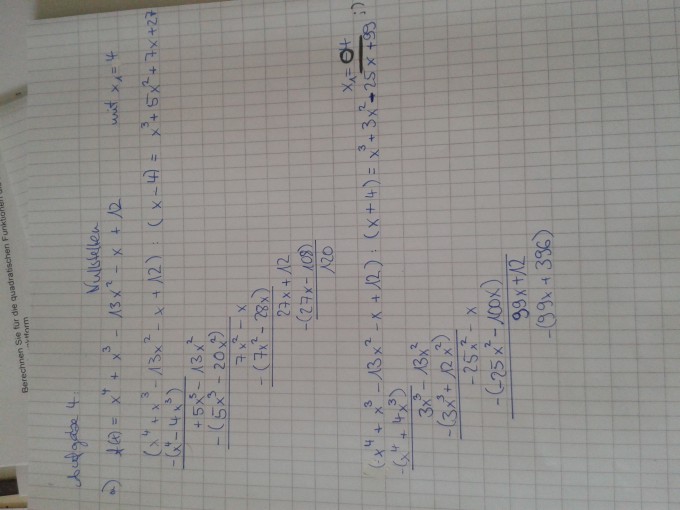 Berechnen Sie für die quadratischen Funktionen die
Aufgabe 4.
Nullstellen
a) f(x) = x⁴ + x³ - 13x² - x + 12 mit x₁ = 4
(x⁴ + x³ - 13x² - x + 12) : (x - 4) = x³ + 5x² + 7x + 27
-(x⁴ - 4x³)
+5x³ - 13x²
-(5x³ - 20x²)
7x² - x
-(7x² - 28x)
27x + 12
-(27x - 108)
120
x₁ = 4
(x⁴ + x³ - 13x² - x + 12) : (x + 4) = x³ + 3x² - 25x + 99 ;)
-(x⁴ + 4x³)
3x³ - 13x²
-(3x³ + 12x²)
-25x² - x
-(-25x² - 100x)
99x + 12
-(99x + 396)